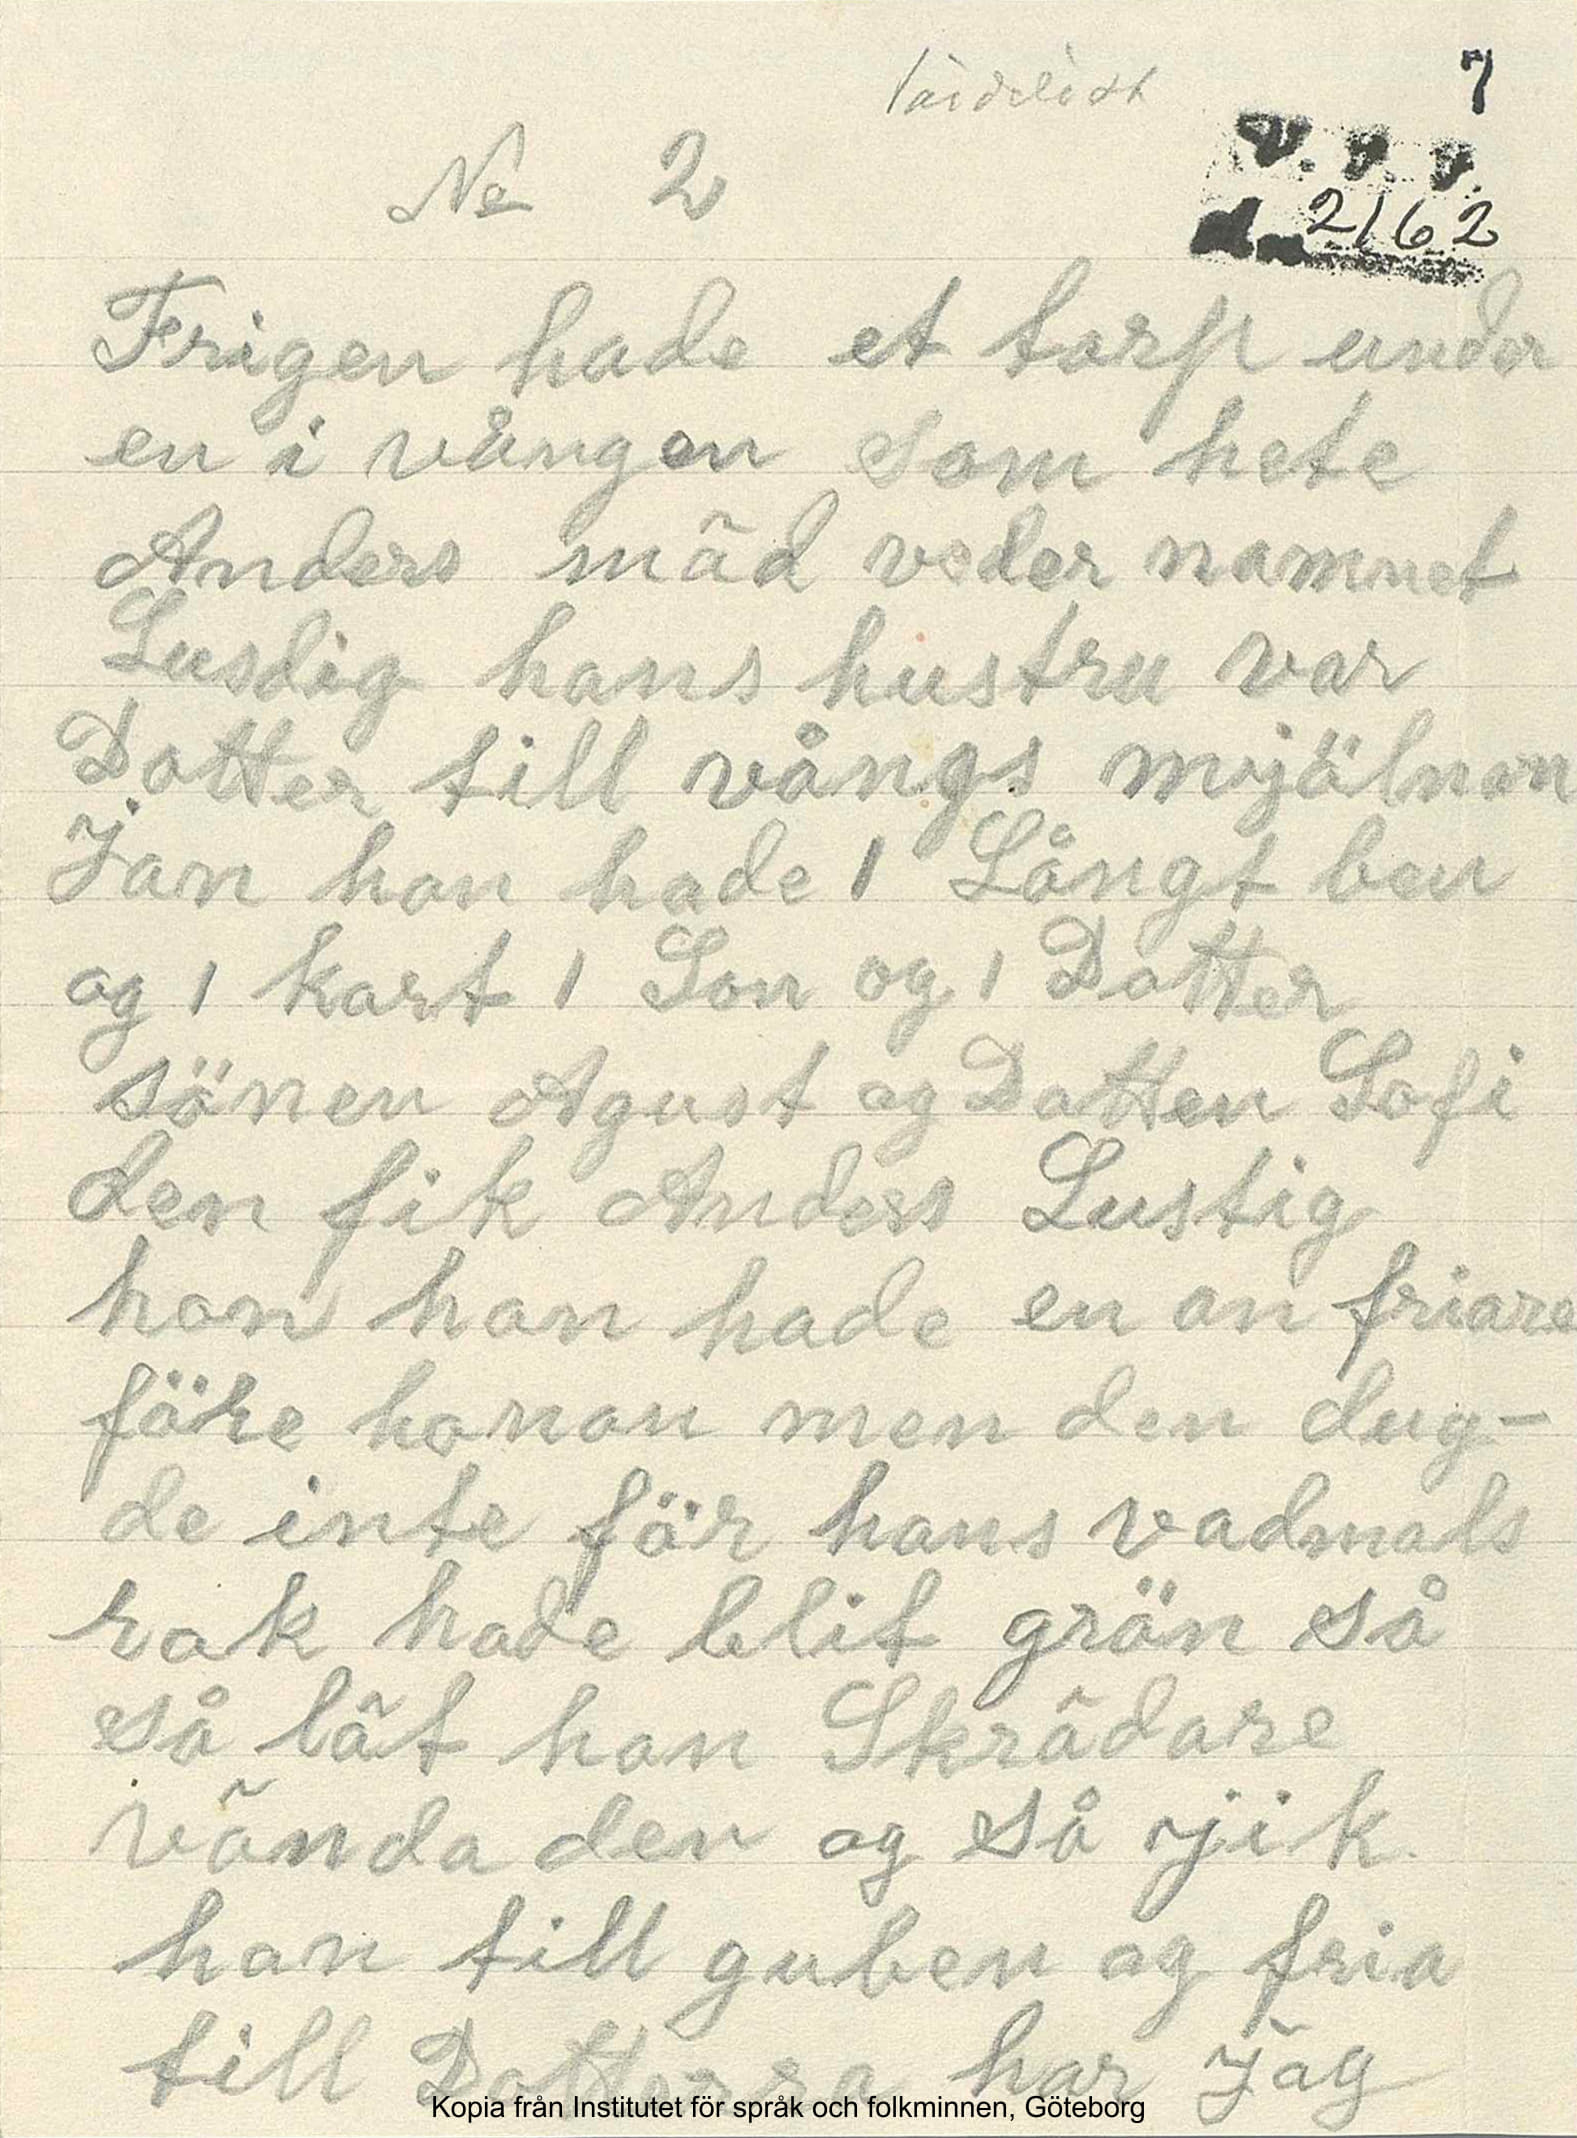 7
No 2
2162
Frigen hade et torp under
en i vången som hete
Anders mäd veder namnet
Lusdig hans hustru var
Dotter till vångs mjälnan
Jan han hade 1 Långt ben
og 1 kort 1 Son og 1 Dotter
sönen Agust og Dotten Sofi
den fik Anders Lustig
hon han hade en an friare
före honon men den dug-
de inte för hans vadmals
rok hade blit grön så
så lät han Skrädare
vända den og så jik
han till guben og fria
till Dotterra har Jäg
Kopia från Institutet för språk och folkminnen, Göteborg